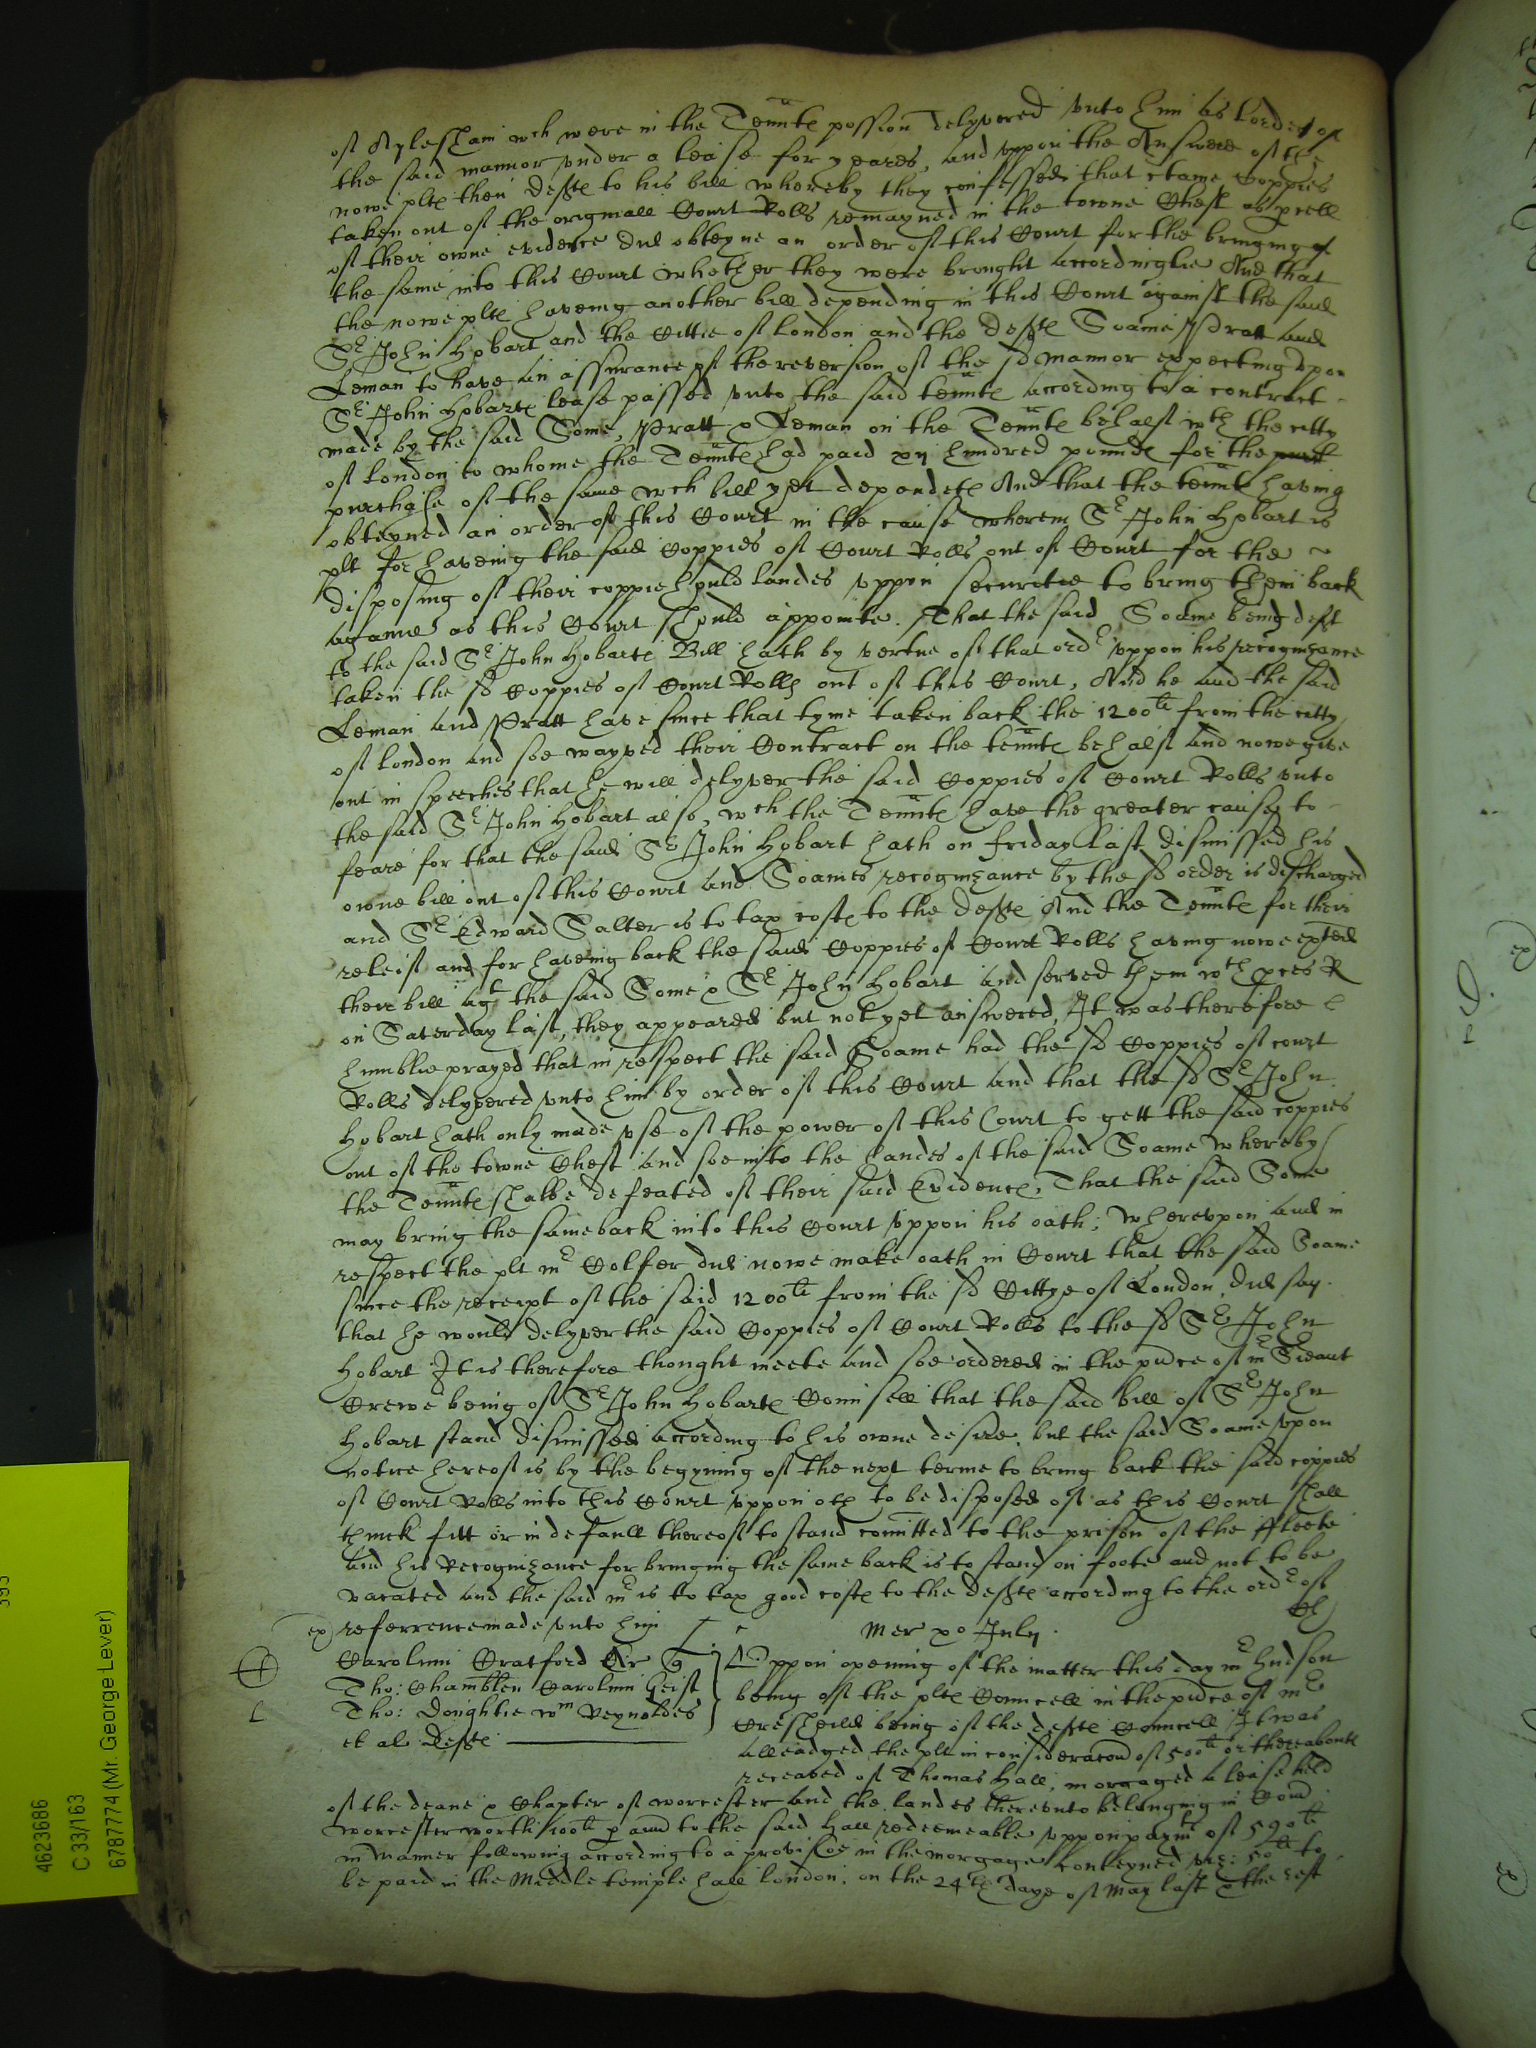 of Aylesham wch were in the Tennte possion delyvered vnto him as Lorde of
the said mannor vnder a lease for yeares, and vppon the Answere of the
nowe plte then defte to his bill whereby they confessed that ctaine Coppies
taken out of the originall Court Rolls remayned in the towne Chest as pcell
of their owne evidence did obteyne an order of this Court for the bringing of
the same into this Court whether they were brought accordinglie And that
the nowe plte haveing another bill depending in this Court against the said
Sr John Hobart and the Cittie of London and the defte Soame Pratt and
Leman to have an assurance of the reversion of the sd mannor expecting vpon
Sr John Hobarte lease passed vnto the said tennte according to a contract
made by the said Some, Pratt & Leman on the Tennte behalf wth the citty
of London to whome the Tennte had paid xij hundred pounde for the
purchase of the same wch bill yet dependeth And that the tennte having
obteyned an order of this Court in the cause wherein Sr John Hobart is
plt for haveing the said Coppies of Court Rolls out of Court for the
disposing of their coppiehould landes vppon securitie to bring them back
againe as this Court should appointe. That the said Soame being deft
to the said Sr John Hobarte Bill hath by vertue of that ordr vppon his recognizance
taken the sd Coppies of Court Rolls out of this Court, And he and the said
Leman and Pratt have since that tyme taken back the 1200li from the citty
of London and soe wayved their Contract on the tennte behalf and nowe give
out in speeches that he will delyver the said Coppies of Court Rolls vnto
the said Sr John Hobart also, wch the Tennte have the greater cause to
feare for that the said Sr John Hobart hath on friday last dismissed his
owne bill out of this Court and Soames recognizance by the sd order is discharged
and Sr Edward Salter is to tax coste to the defte And the Tennte for their
releif and for haveing back the said Coppies of Court Rolls having nowe exhited
their bill agt the said Some & Sr John Hobart and served them wth pces R
on Saterday last, they appeared but not yet answered, It was therefore
humblie prayed that in respect the said Soame had the sd Coppies of court
Rolls delyvered vnto him by order of this Court and that the sd Sr John
Hobart hath only made vse of the power of this Court to gett the said coppies
out of the towne Chest and soe into the handes of the said Soame whereby
the Tennte shalbe defeated of their said Evidence, That the said Some
may bring the same back into this Court vppon his oath; Wherevpon and in
respect the plt mr Colfer did nowe make oath in Court that the said Soame
since the receipt of the said 1200li from the sd Cittye of London did say
that he would delyver the said Coppies of Court Rolls to the sd Sr John
Hobart It is therefore thought meete and soe ordered in the pnce of mr Sieant
Crewe being of Sr John Hobarte Counsell that the said bill of Sr John
Hobart stand dismissed according to his owne desire, but the said Soame vpon
notice hereof is by the begyning of the next terme to bring back the said coppies
of Court Rolls into this Court vppon oth to be disposed of as this Court shall
think fitt or in default thereof to stand comitted to the prison of the ffleete
and his Recognizance for bringing the same back is to stand on foote and not to be
vacated and the said mr is to tax good coste to the defte according to the ordr of
referrence made vnto him
ex
Mer xo July
Carolum Cratford Ar q
Tho: Chamblen Carolum Geist
Tho: Doughtie wm Reynoldes
et al defte
Vppon opening of the matter this day mr Hudson
being of the plte Councell in the pnce of mr
Creshheld being of the defte Councell It was
alleadged the plt in consideracon of 500li or thereaboute
receaved of Thomas Hall, morgaged a lease held
of the deane & Chapter of worcester and the landes therevnto belonging in Com
worcester worth 100li p ann to the said Hall redeemeable vppon paymt of 590li
in manner following according to a provisoe in the morgage conteyned viz: 50li to
be paid in the Middle temple hall london, on the 24th daye of May last & the rest
4623686
C 33/163
6787774 (Mr. George Lever)